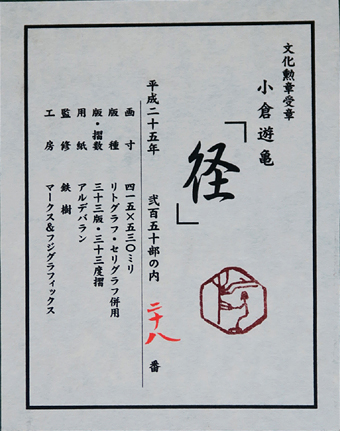 文化勲章受章
小倉遊亀
「径」
平成二十五年 弐百五十部の内 二十八 番
画寸 四一五×五三〇ミリ
版種 リトグラフ・セリグラフ併用
版・摺数 三十三版・三十三度摺
用紙 アルデバラン
監修 鉄樹
工房 マークス&フジグラフィックス